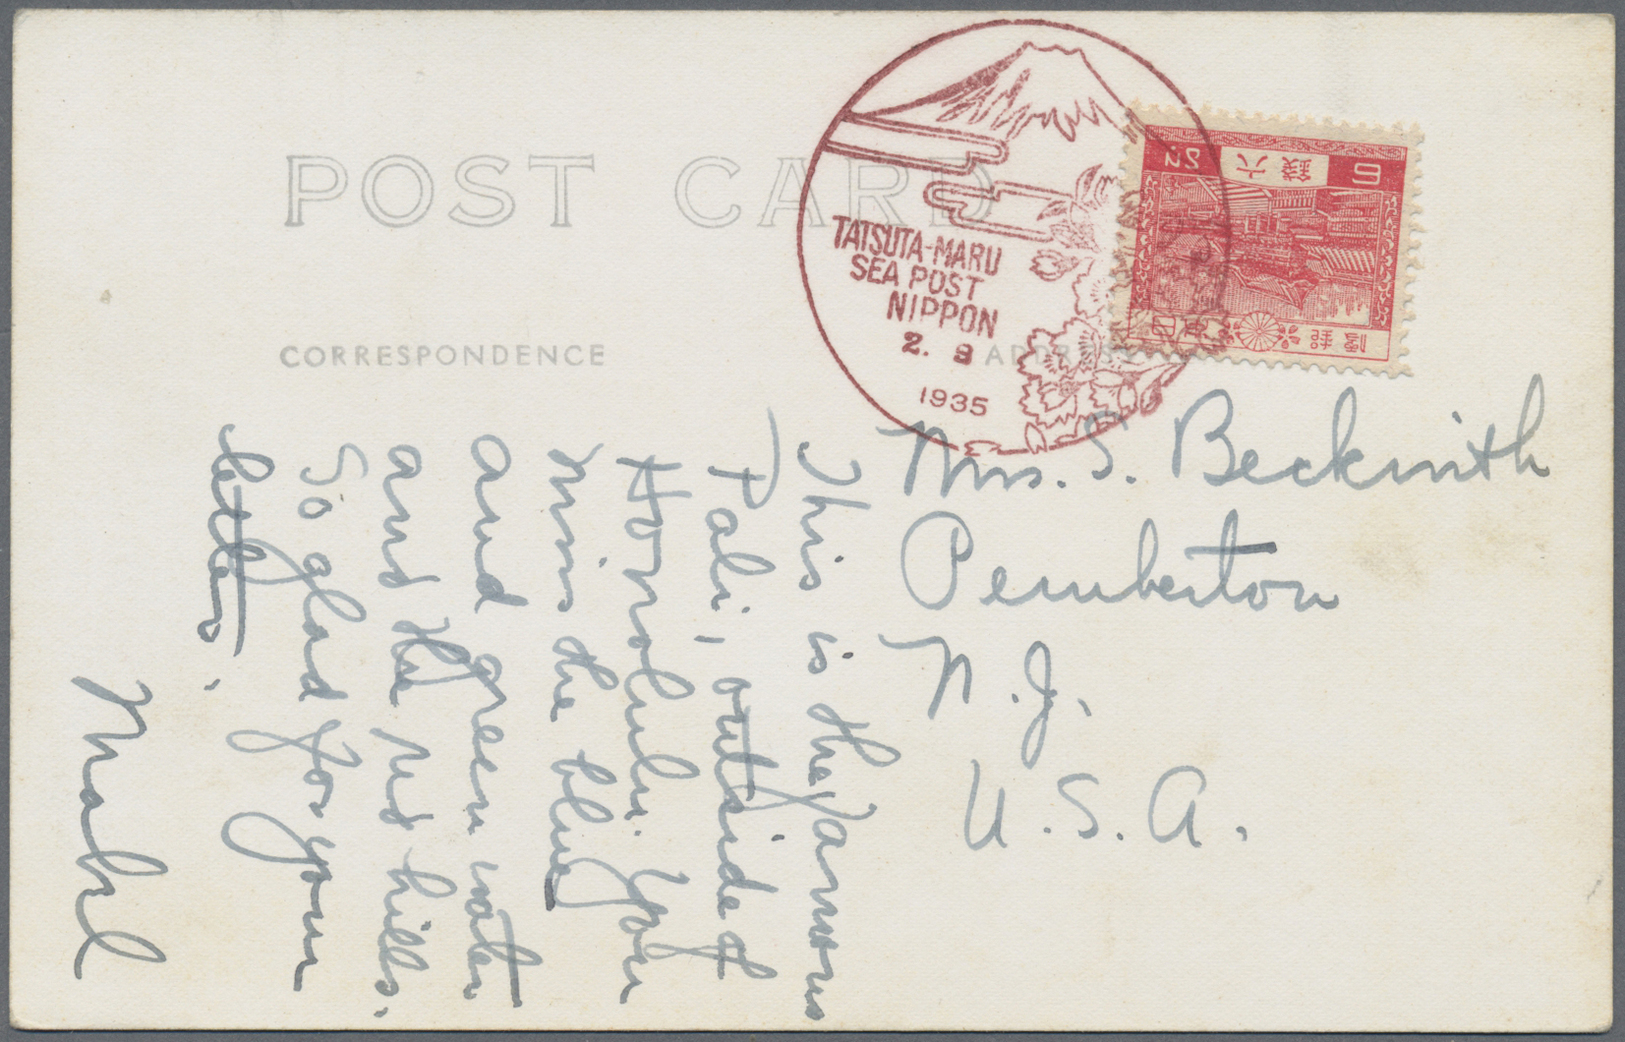 POST CARD
TATSUTA-MARU
SEA POST
NIPPON
2. 9
1935
6
六銭
Sn
日本郵便
CORRESPONDENCE
ADDRESS
Mrs. S. Beckwith
Pemberton
N. J.
U. S. A.
This is the famous
Pali, outside of
Honolulu. You
miss the blue
and green water
and the red hills.
So glad for your
letters.
Mabel